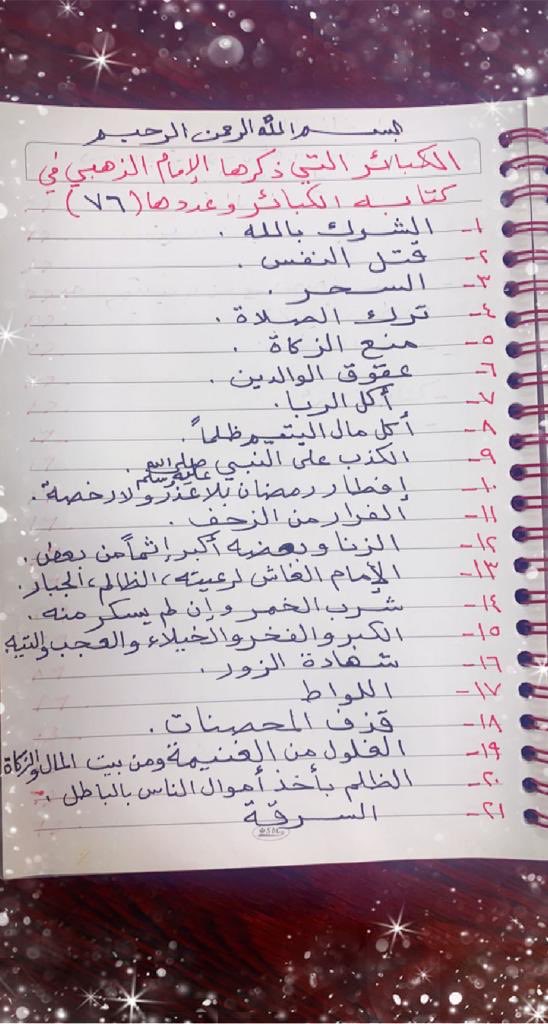 بسم الله الرحمن الرحيم
الكبائر التي ذكرها الإمام الذهبي في
كتابه الكبائر وعددها (٧٦)
١- الشرك بالله .
٢- قتل النفس .
٣- السحر .
٤- ترك الصلاة .
٥- منع الزكاة .
٦- عقوق الوالدين .
٧- أكل الربا .
٨- أكل مال اليتيم ظلماً .
٩- الكذب على النبي صلى الله عليه وسلم
١٠- إفطار رمضان بلا عذر ولا رخصة .
١١- الفرار من الزحف .
١٢- الزنا وبعضه أكبر إثماً من بعض .
١٣- الإمام الغاش لرعيته ، الظالم ، الجبار .
١٤- شرب الخمر وإن لم يسكر منه .
١٥- الكبر والفخر والخيلاء والعجب والتيه
١٦- شهادة الزور .
١٧- اللواط
١٨- قذف المحصنات .
١٩- الغلول من الغنيمة ومن بيت المال والزكاة
٢٠- الظلم بأخذ أموال الناس بالباطل .
٢١- السرقة